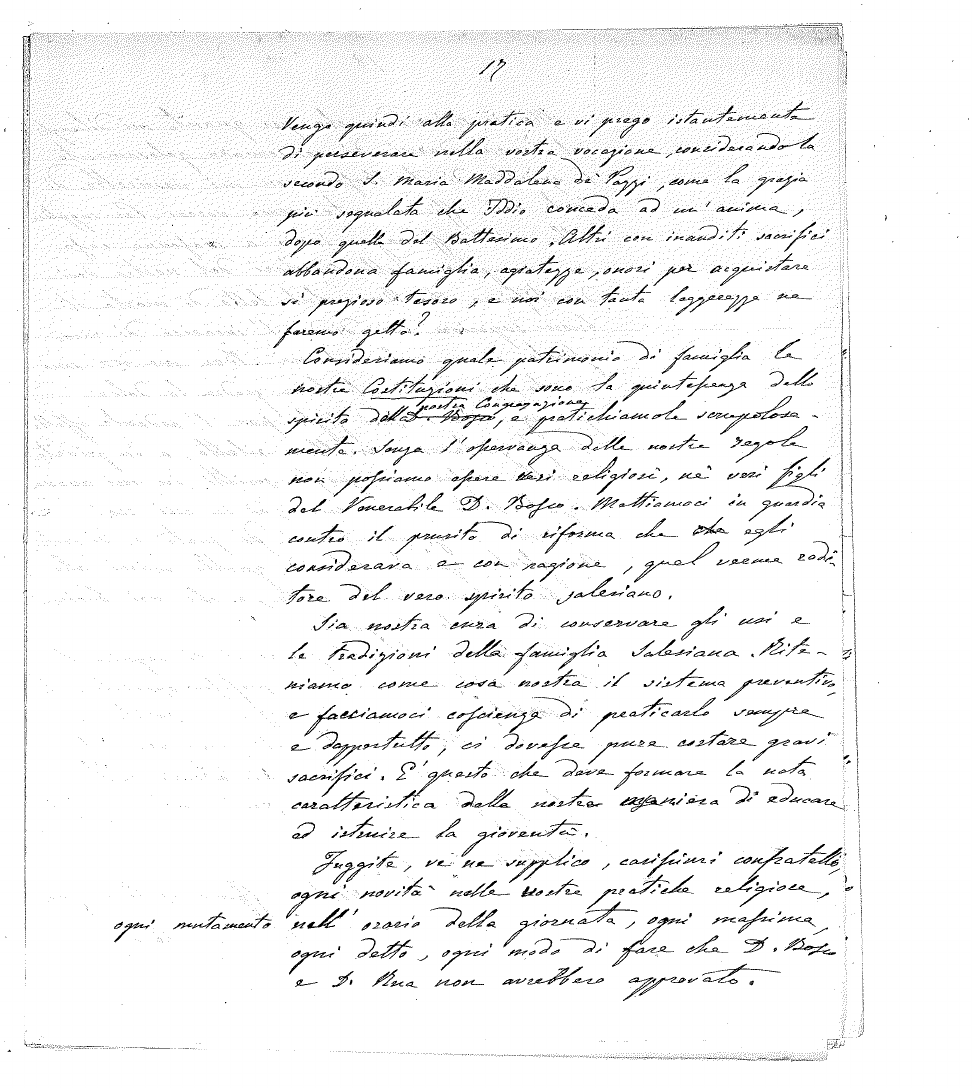 17
Vengo quindi alla pratica e vi prego istantemente
di perseverare nella vostra vocazione, considerandola
secondo S. Maria Maddalena de' Pazzi, come la grazia
più segnalata che Iddio conceda ad un' anima,
dopo quella del Battesimo. Altri con inauditi sacrifici
abbandona famiglia, agiatezze, onori per acquistare
sì prezioso tesoro, e noi con tanta leggerezza ne
faremo getto?
Consideriamo quale patrimonio di famiglia le
nostre Costituzioni che sono la quintessenza dello
nostra Congregazione
spirito della D. Bosco, e pratichiamole scrupolosa-
mente. Senza l'osservanza delle nostre regole
non possiamo essere veri religiosi, nè veri figli
del Venerabile D. Bosco. Mettiamoci in guardia
contro il prurito di riforma che che egli
considerava e con ragione, qual verme rodi-
tore del vero spirito salesiano.
Sia nostra cura di conservare gli usi e
le tradizioni della famiglia Salesiana. Rite-
niamo come cosa nostra il sistema preventivo,
e facciamoci coscienza di praticarlo sempre
e dappertutto, ci dovesse pure costare gravi
sacrifici. E' questo che deve formare la nota
caratteristica della nostra maniera di educare
ed istruire la gioventù.
Fuggite, ve ne supplico, carissimi confratelli,
ogni novità nelle vostre pratiche religiose,
ogni mutamento nell' orario della giornata, ogni massima,
ogni detto, ogni modo di fare che D. Bosco
e D. Rua non avrebbero approvato.